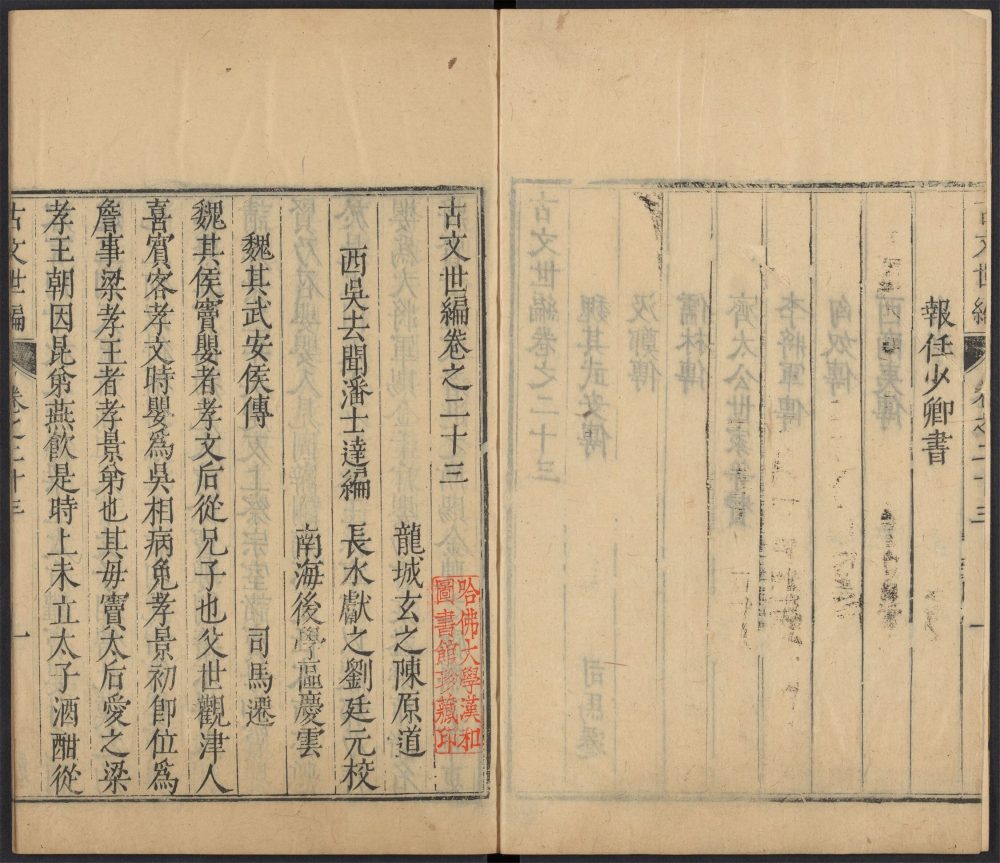 古文世編
卷之二十三
一
報任少卿書
古文世編卷之二十三
龍城玄之陳原道
西吳去聞潘士達編　長水獻之劉廷元校
南海後學區慶雲
魏其武安侯傳　司馬遷
魏其侯竇嬰者孝文后從兄子也父世觀津人
喜賓客孝文時嬰爲吳相病免孝景初卽位爲
詹事梁孝王者孝景弟也其母竇太后愛之梁
孝王朝因昆弟燕飲是時上未立太子酒酣從
古文世編
卷之二十三
一
哈佛大學漢和
圖書館珍藏印